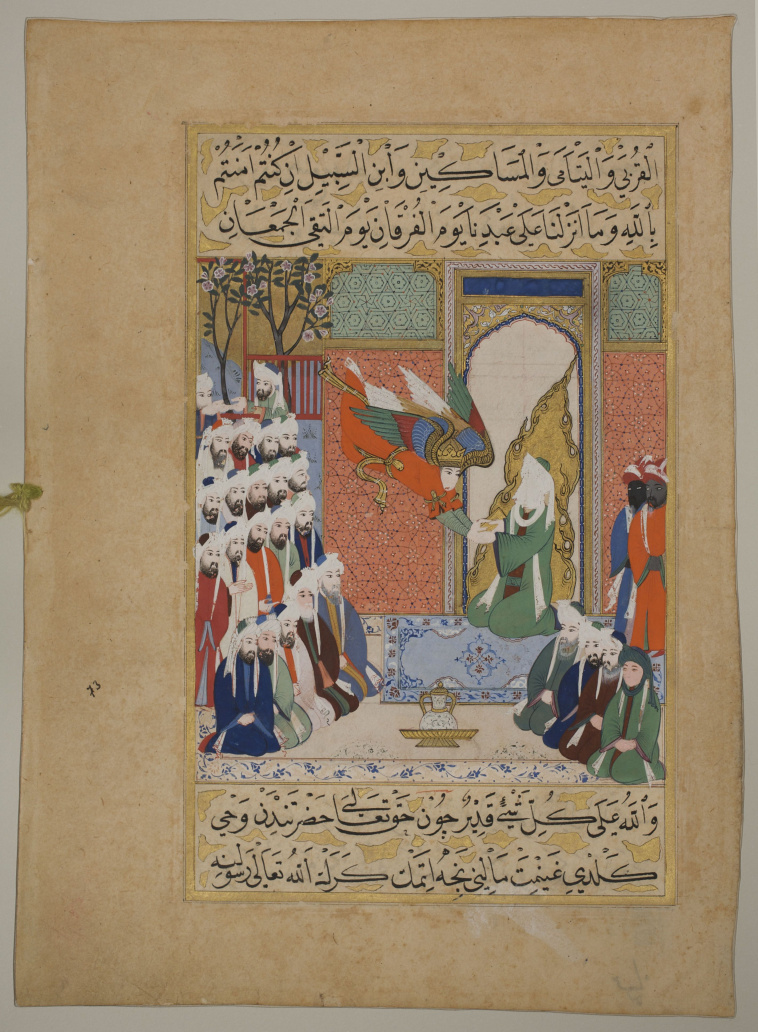 الْقُرْبَى وَالْيَتَامَى وَالْمَسَاكِينِ وَابْنِ السَّبِيلِ اِنْ كُنْتُمْ اٰمَنْتُمْ
بِاللّٰهِ وَمَا اَنْزَلْنَا عَلٰى عَبْدِنَا يَوْمَ الْفُرْقَانِ يَوْمَ الْتَقَى الْجَمْعَانِ
وَاللّٰهُ عَلٰى كُلِّ شَيْءٍ قَدِيرٌ چون حق تعالى حضرتندن وحى
كلدى غنيمت مالينى نجه اتمك كرك الله تعالى رسولنه
73